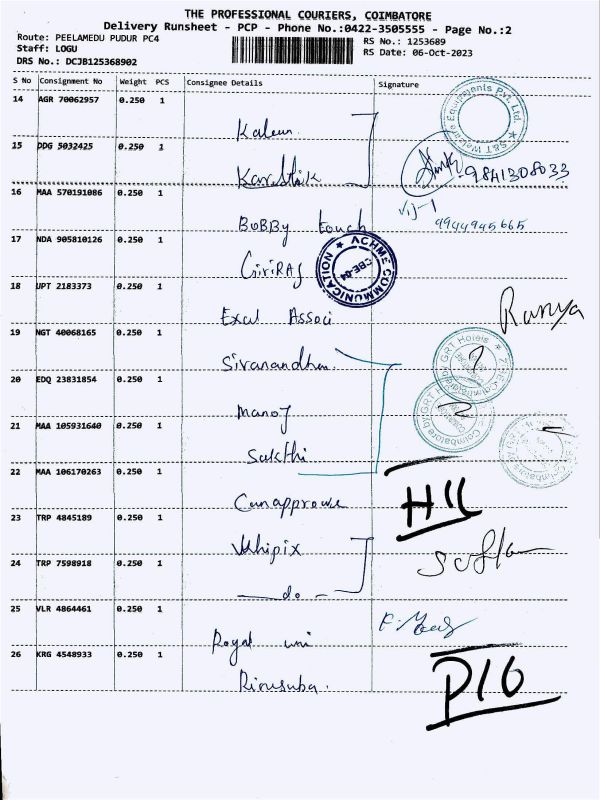 THE PROFESSIONAL COURIERS, COIMBATORE
Delivery Runsheet - PCP - Phone No.:0422-3505555 - Page No.:2
Route: PEELAMEDU PUDUR PC4
RS No.: 1253689
Staff: LOGU
RS Date: 06-Oct-2023
DRS No.: DCJB125368902
S No Consignment No Weight PCS Consignee Details Signature
14 AGR 70062957 0.250 1
S&T Welcare Equipments Pvt. Ltd.
15 DDG 5032425 0.250 1 Karthik
9841308033
16 MAA 570191086 0.250 1 BOBBy touch
VIJ-1
9944945665
17 NDA 905810126 0.250 1 GiriRAJ
ACHME COMMUNICATION
CBE-04
18 UPT 2183373 0.250 1 Excel Associ
Ramya
19 NGT 40068165 0.250 1 Sivanandhan.
GRT Hotels
20 EDQ 23831854 0.250 1 Manoj
Coimbatore by GRT
21 MAA 105931640 0.250 1 Sakthi
22 MAA 106170263 0.250 1
23 TRP 4845189 0.250 1
24 TRP 7598918 0.250 1 do
25 VLR 4864461 0.250 1 Royal uni
26 KRG 4548933 0.250 1
P10